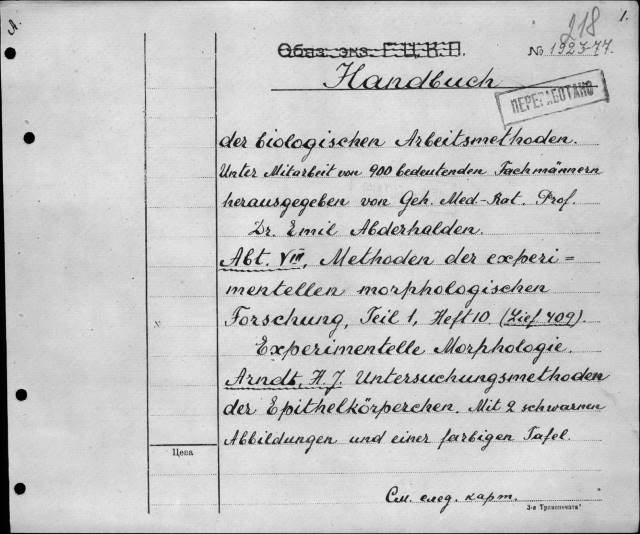 А.
218
1.
Обяз. экз. Г.Ц.К.П.
№ 1923-77.
Handbuch
ПЕРЕРАБОТАНО
der biologischen Arbeitsmethoden.
Unter Mitarbeit von 900 bedeutenden Fachmännern
herausgegeben von Geh. Med-Rat. Prof.
Dr. Emil Abderhalden.
Abt. VIII, Methoden der experi=
mentellen morphologischen
Forschung, Teil 1, Heft 10. (Lief. 409).
Experimentelle Morphologie.
Arndt, H. J. Untersuchungsmethoden
der Epithelkörperchen. Mit 2 schwarnen
Abbildungen und einer farbigen Tafel.
Цена
См. след. карт.
3-я Транспечать